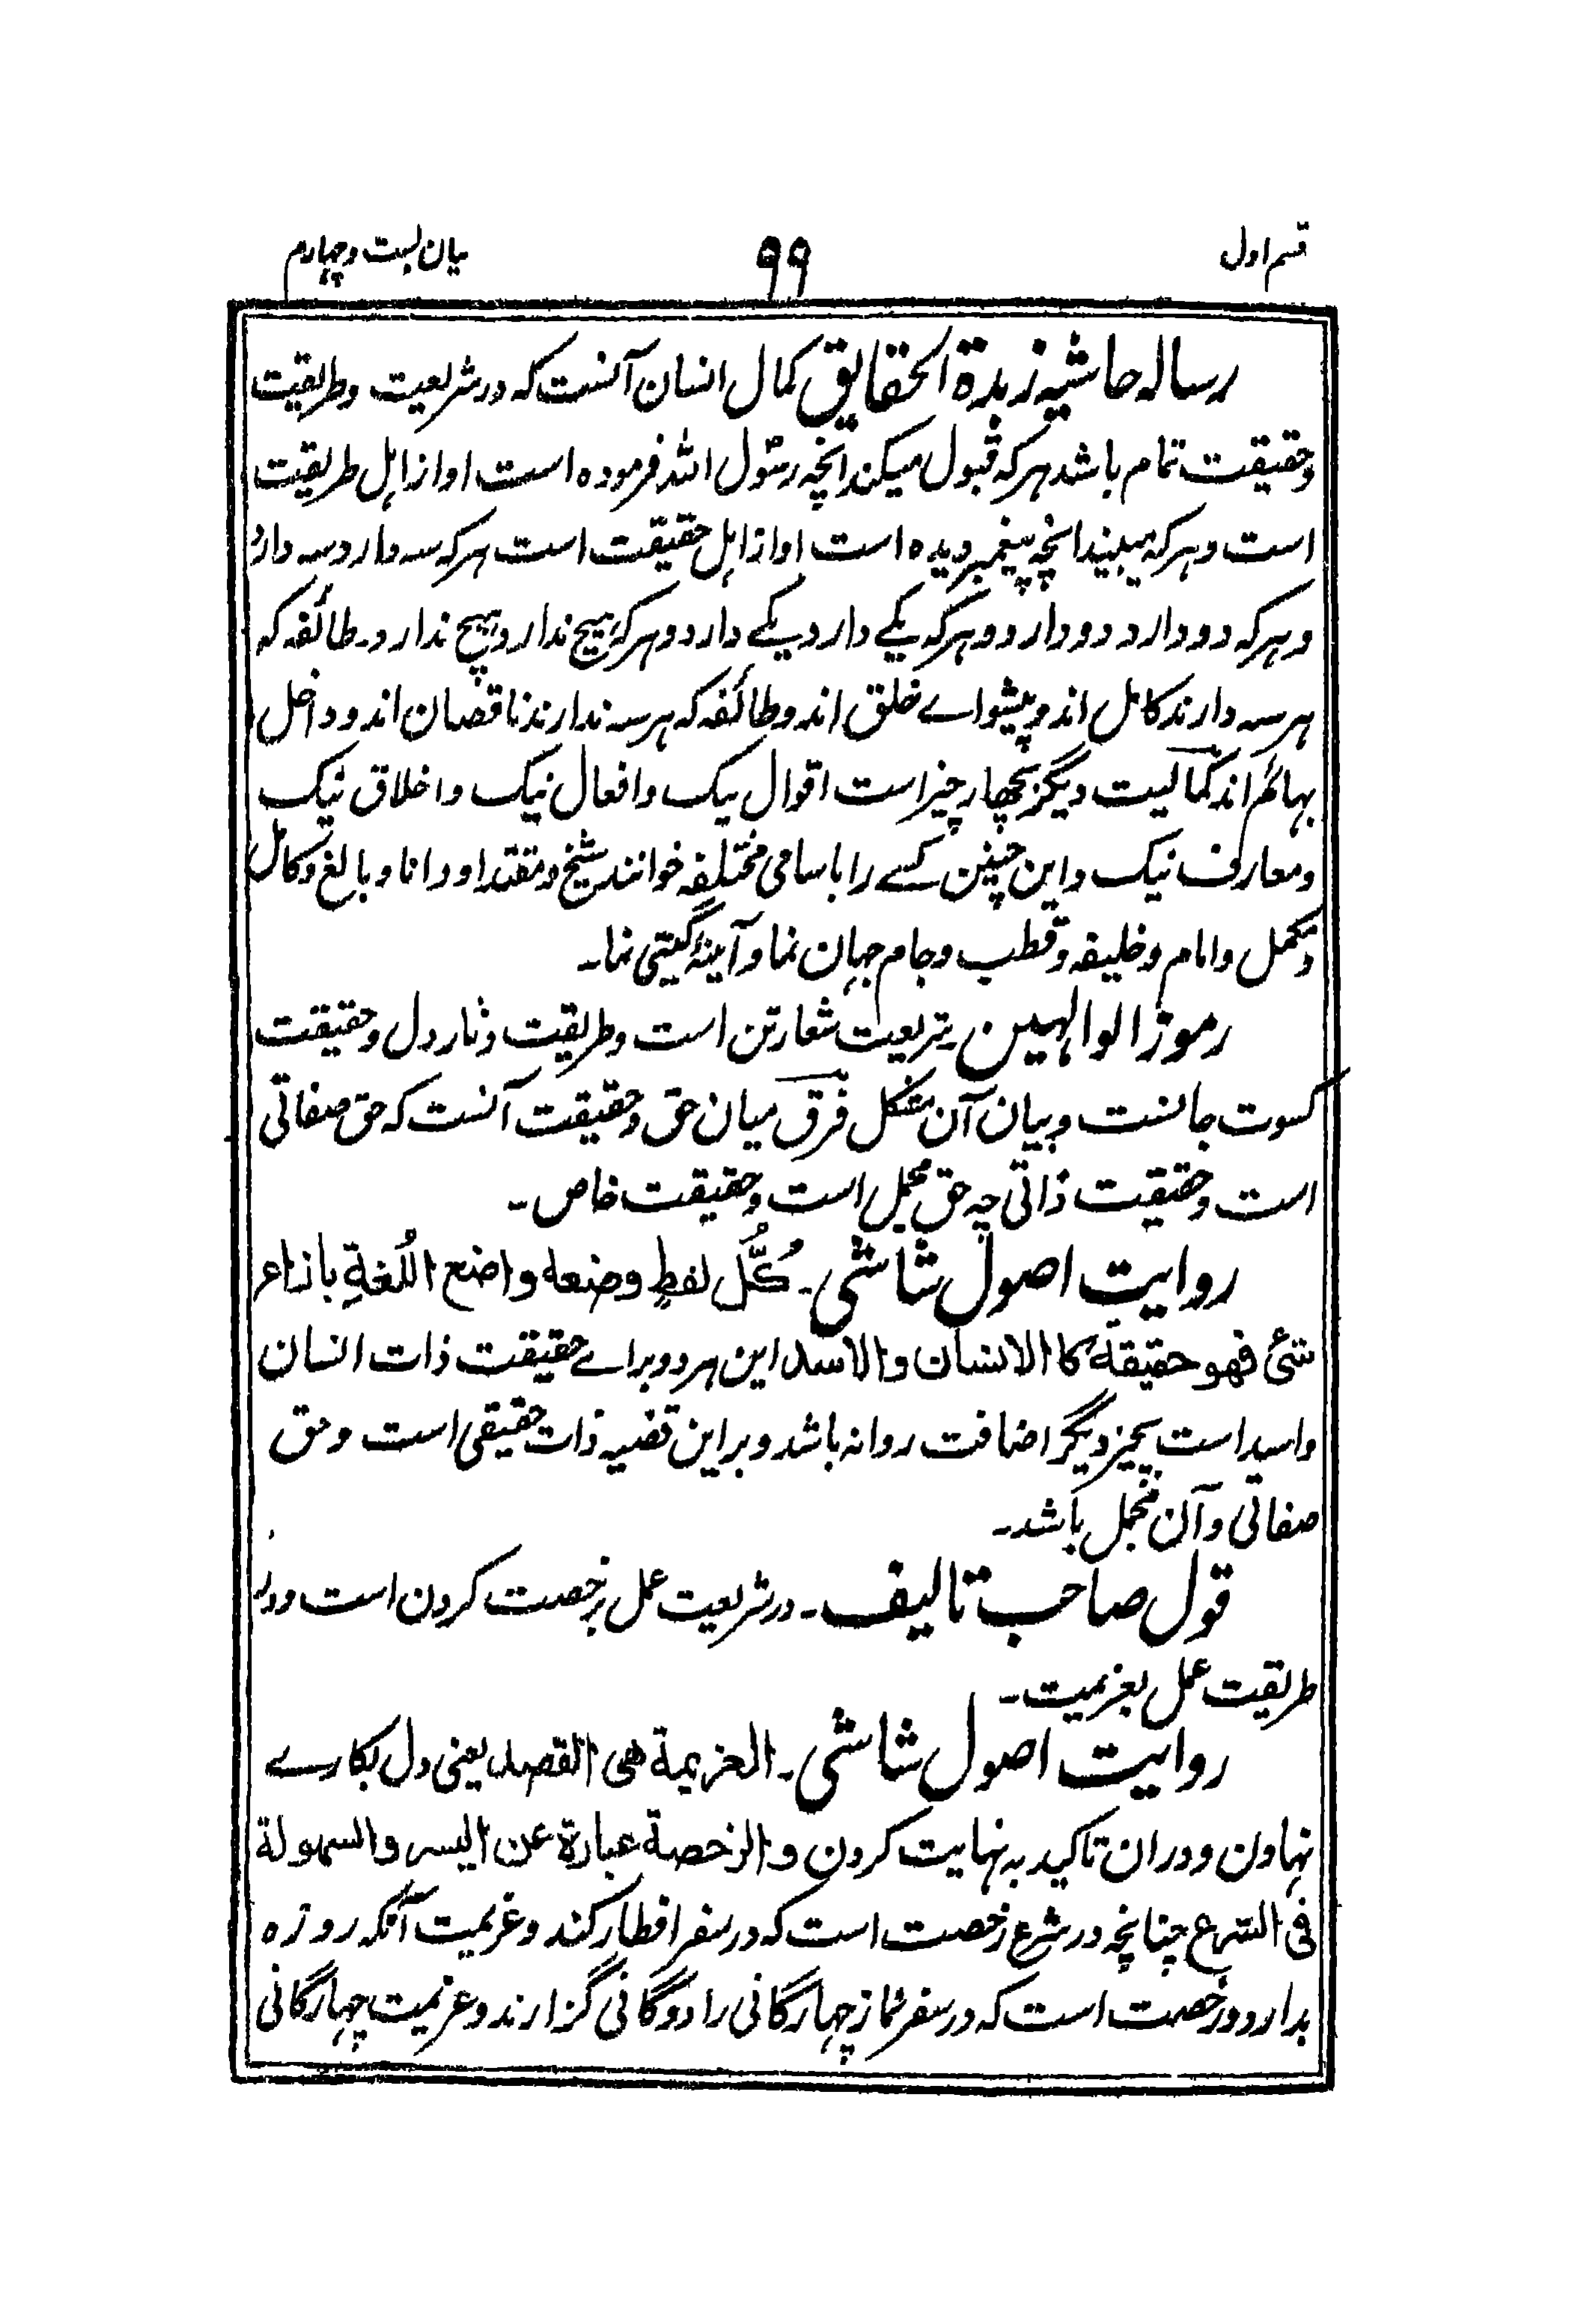 قسم اول
۹۹
بیان بست و چهارم
رساله حاشیه زبدة الحقایق کمال انسان آنست که در شریعت و طریقت
و حقیقت تمام باشد هرکه قبول میکند انچه رسول الله فرموده است او از اهل طریقت
است و هرکه میبیند انچه پیغمبر دیده است او از اهل حقیقت است هرکه سه دارد سه دارد
و هرکه دو دارد دو دارد و هرکه یکے دارد یکے دارد و هرکه هیچ ندارد هیچ ندارد۔ طائفه که
هر سه دارند کامل اند و پیشواے خلق اند و طائفه که هر سه ندارند ناقصان اند و داخل
بهائم اند کمالیت دیگر بچهار چیز است اقوال نیک و افعال نیک و اخلاق نیک
و معارف نیک و این چنین کسے را باسامی مختلفه خوانند شیخ و مقتدا و دانا و بالغ و کامل
و مکمل و امام و خلیفه و قطب و جام جهان نما و آینهٔ گیتی نما۔
رموز الوالهین۔ شریعت شعار تن است و طریقت دثار دل و حقیقت
کسوت جانست و بیان آن مشکل فرق میان حق و حقیقت آنست که حق صفاتی
است و حقیقت ذاتی چه حق مجمل است و حقیقت خاص۔
روایت اصول شاشی۔ کُلُّ لفظٍ وضعه واضع اللُغةِ بازاء
شئ فهو حقیقة کا الانسان والاسد این هردو براے حقیقت ذات انسان
و اسد است بچیز دیگر اضافت روا نه باشد و بر این قضیه ذات حقیقی است و حق
صفاتی و آن مجمل باشد۔
قول صاحب تالیف۔ در شریعت عمل برخصت کردن است و در
طریقت عمل بعزیمت۔
روایت اصول شاشی۔ العزیمة هی القصد یعنی دل بکارے
نهادن و دران تاکید به نهایت کردن و الرخصة عبارة عن الیسر والسهولة
فی الشرع چنانچه در شرع رخصت است که در سفر افطار کند و عزیمت آنکه روزه
بدارد و رخصت است که در سفر نماز چهارگانی را دوگانی گزارند و عزیمت چهارگانی